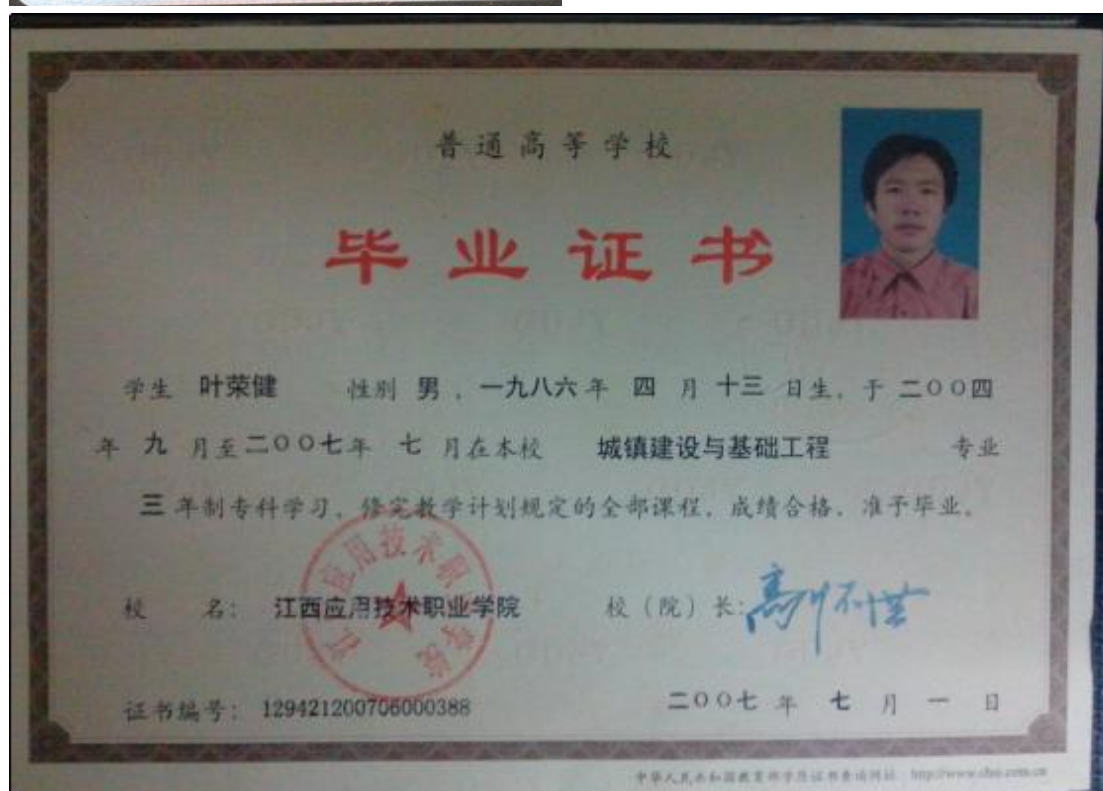 普通高等学校
毕业证书
学生 叶荣健 性别 男，一九八六年 四 月 十三 日生，于 二〇〇四
年 九 月至二〇〇七年 七 月在本校 城镇建设与基础工程 专业
三 年制专科学习，修完教学计划规定的全部课程，成绩合格，准予毕业。
校 名： 江西应用技术职业学院 校（院）长：
江西应用技术职业学院
证书编号： 129421200706000388 二〇〇七 年 七 月 一 日
中华人民共和国教育部学历证书查询网址 http://www.chsi.com.cn